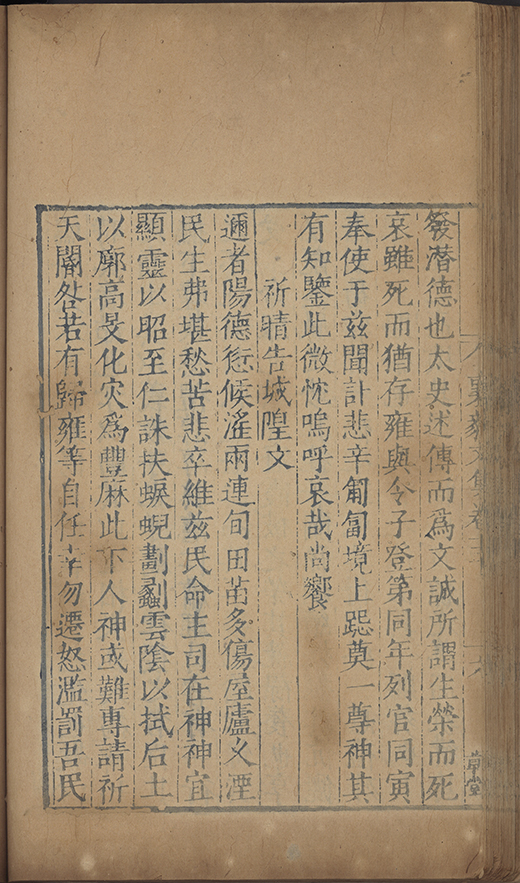 發潛德也太史述傳而爲文誠所謂生榮而死
哀雖死而猶存雍與令子登第同年列官同寅
奉使于兹聞訃悲辛匍匐境上跽奠一尊神其
有知鑒此微忱嗚呼哀哉尚饗
祈晴告城隍文
邇者陽德愆候滛雨連旬田苗多傷屋廬又湮
民生弗堪愁苦悲卒維兹民命主司在神神宜
顯靈以昭至仁誅扶蜧蜺劃劙雲陰以拭后土
以廓高旻化灾爲豐庥此下人神或難專請祈
天閽咎若有歸雍等自任幸勿遷怒濫罰吾民